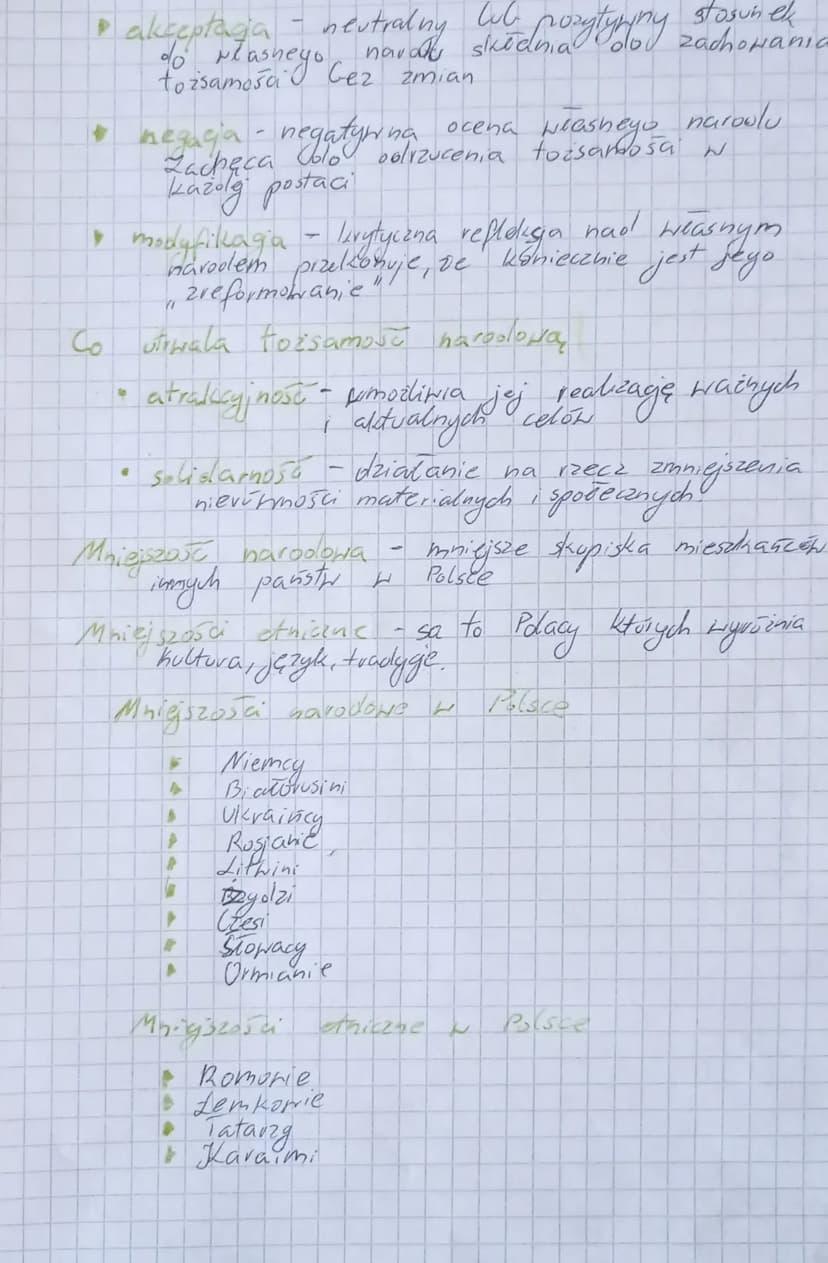 akceptacja - neutralny lub pozytywny stosunek
do własnego narodu skłania do zachowania
tożsamości bez zmian
negacja - negatywna ocena własnego narodu
zachęca do odrzucenia tożsamości w
każdej postaci
modyfikacja - krytyczna refleksja nad własnym
narodem przekonuje, że koniecznie jest jego
„zreformowanie"
Co utrwala tożsamość narodową
• atrakcyjność - umożliwia jej realizację ważnych
i aktualnych celów
• solidarność - działanie na rzecz zmniejszenia
nierówności materialnych i społecznych
Mniejszość narodowa - mniejsze skupiska mieszkańców
innych państw w Polsce
Mniejszości etniczne - sa to Polacy których wyróżnia
kultura, język, tradycje.
Mniejszości narodowe w Polsce
Niemcy
Białorusini
Ukraińcy
Rosjanie
Litwini
Żydzi
Czesi
Słowacy
Ormianie
Mniejszości etniczne w Polsce
Romowie
Łemkowie
Tatarzy
Karaimi